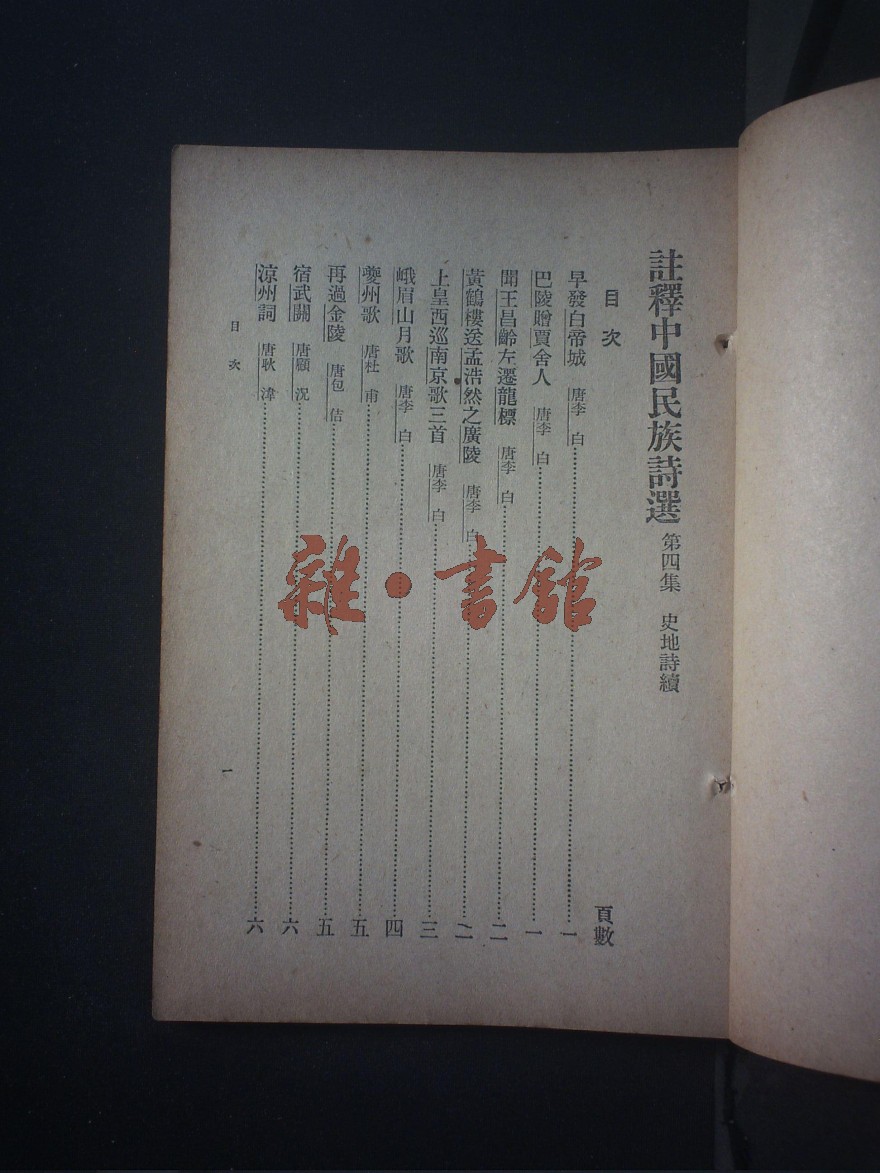 註釋中國民族詩選 第四集 史地詩續
目次
頁數
早發白帝城 唐李白 一
巴陵贈賈舍人 唐李白 一
聞王昌齡左遷龍標 唐李白 二
黃鶴樓送孟浩然之廣陵 唐李白 二
上皇西巡南京歌三首 唐李白 三
峨眉山月歌 唐李白 四
夔州歌 唐杜甫 五
再過金陵 唐包佶 五
宿武關 唐顧況 六
涼州詞 唐耿湋 六
目次
一
雜·書館